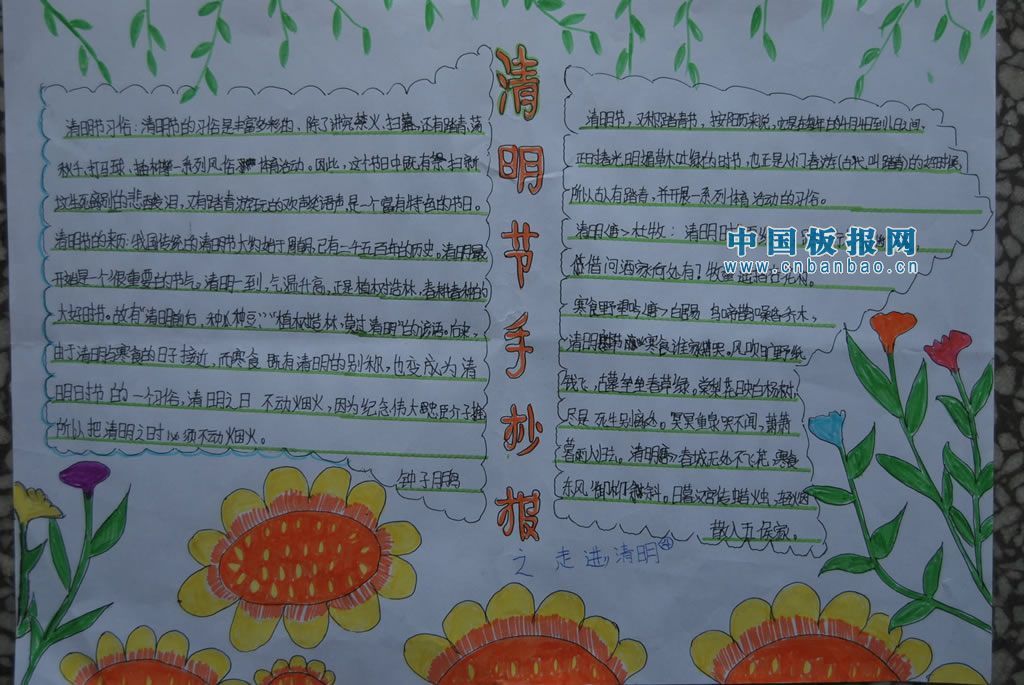 清明节手抄报
清明节习俗：清明节的习俗是丰富多彩的，除了讲究禁火、扫墓，还有踏青、荡
秋千、打马球、插柳等一系列风俗体育活动。因此，这个节日中既有祭扫新
坟生死离别的悲酸泪，又有踏青游玩的欢声笑语声，是一个富有特色的节日。
清明节的来历：我国传统的清明节大约始于周朝，已有二千五百年的历史。清明最
开始是一个很重要的节气，清明一到，气温升高，正是植树造林，春耕春种的
大好时节。故有“清明前后，种瓜种豆”、“植树造林，莫过清明”的谚语。后来，
由于清明与寒食的日子接近，而寒食 既有清明的别称，也变成为清
明时节的一个习俗，清明之日 不动烟火，因为纪念伟大忠臣介子推
所以把清明之时 必须不动烟火。
钟子月鹃
清明节，又称踏青节，按阳历来说，它是在每年的4月4日到6日之间，
正时春光明媚草木吐绿的时节，也正是人们春游(古代叫踏青)的好时候，
所以就有踏青，并开展一系列体育活动的习俗。
清明<唐>杜牧：清明时
借问酒家何处有？牧童遥指杏花村。
寒食野望吟<唐>白居易 乌啼鹊噪昏乔木，
清明寒食谁家哭。风吹旷野纸
钱飞，古墓垒垒春草绿。棠梨花映白杨树，
尽是死生别离处。冥冥重泉哭不闻，萧萧
暮雨人归去。清明<唐>春城无处不飞花，寒食
东风御柳斜。日暮汉宫传蜡烛，轻烟
散入五侯家。
之 走进清明
中国板报网
www.cnbanbao.cn